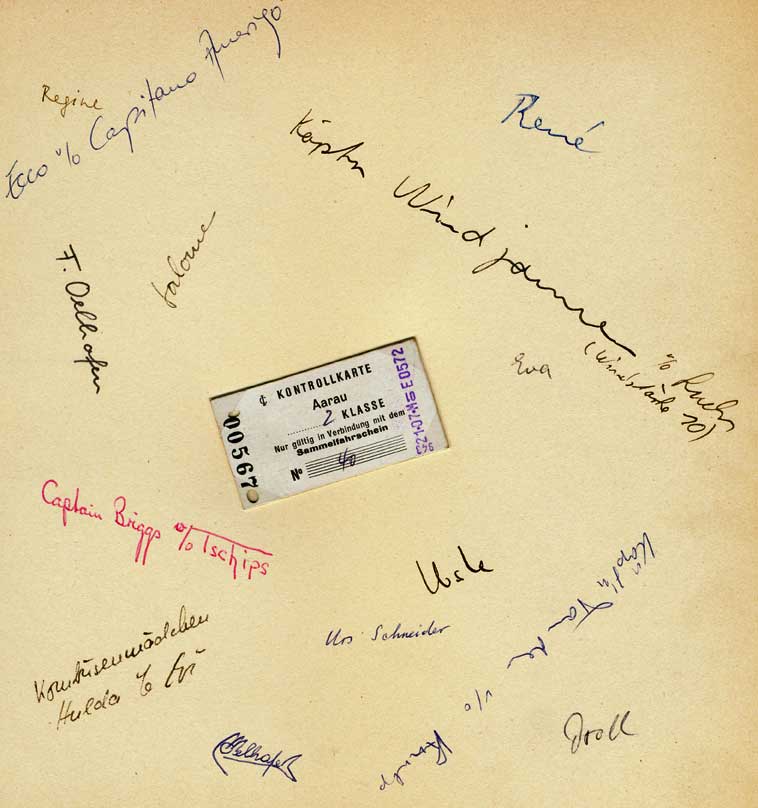 Regine
Ecco % Capitano Amerigo
René
Käptn Windjamme % 
(Windstärke 10)
F. Oelhafen
Salome
Eva
¢ KONTROLLKARTE
Aarau
2 KLASSE
Nur gültig in Verbindung mit dem
Sammelfahrschein
Nº 40
00567
S21-07-N E0572
Captain Briggs % Tschips
Uste
Urs Schneider
Käpt'n v/o
Kombüsenmädchen
Hulda % Evi
Oelhafen
Droll